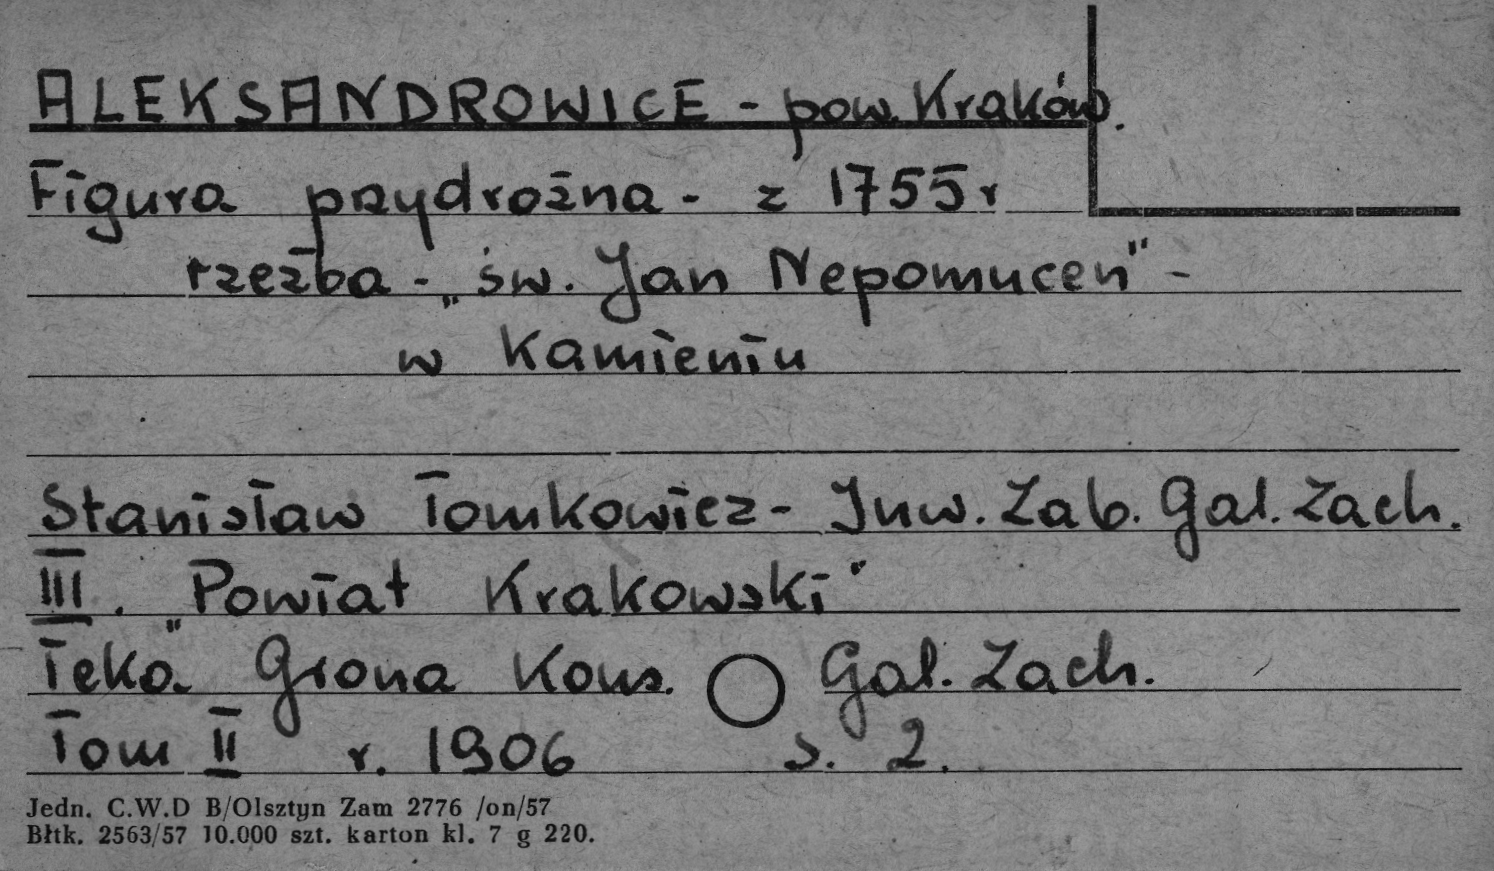 ALEKSANDROWICE - pow. Kraków.
Figura przydrożna - z 1755 r
rzeźba - „św. Jan Nepomucen" -
w kamieniu
Stanisław Tomkowicz - Inw. Zab. Gal. Zach.
III. „Powiat Krakowski"
Teka Grona Kons. Gal. Zach.
Tom II r. 1906 s. 2.
Jedn. C.W.D B/Olsztyn Zam 2776 /on/57
Błtk. 2563/57 10.000 szt. karton kl. 7 g 220.